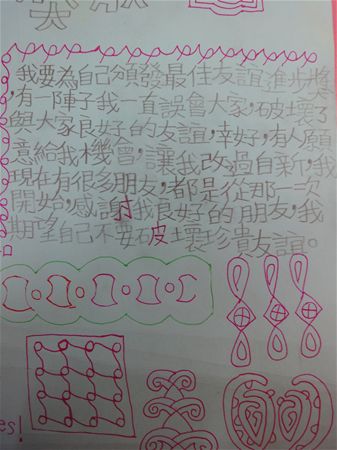 我要為自己頒發最佳友誼進步獎
,有一陣子我一直誤會大家,破壞了
與大家良好的友誼,幸好,有人願
意給我機會,讓我改過自新,我
現在有很多朋友,都是從那一次
開始,感謝我良好的朋友,我
期望自己不要破壞珍貴友誼。
es!